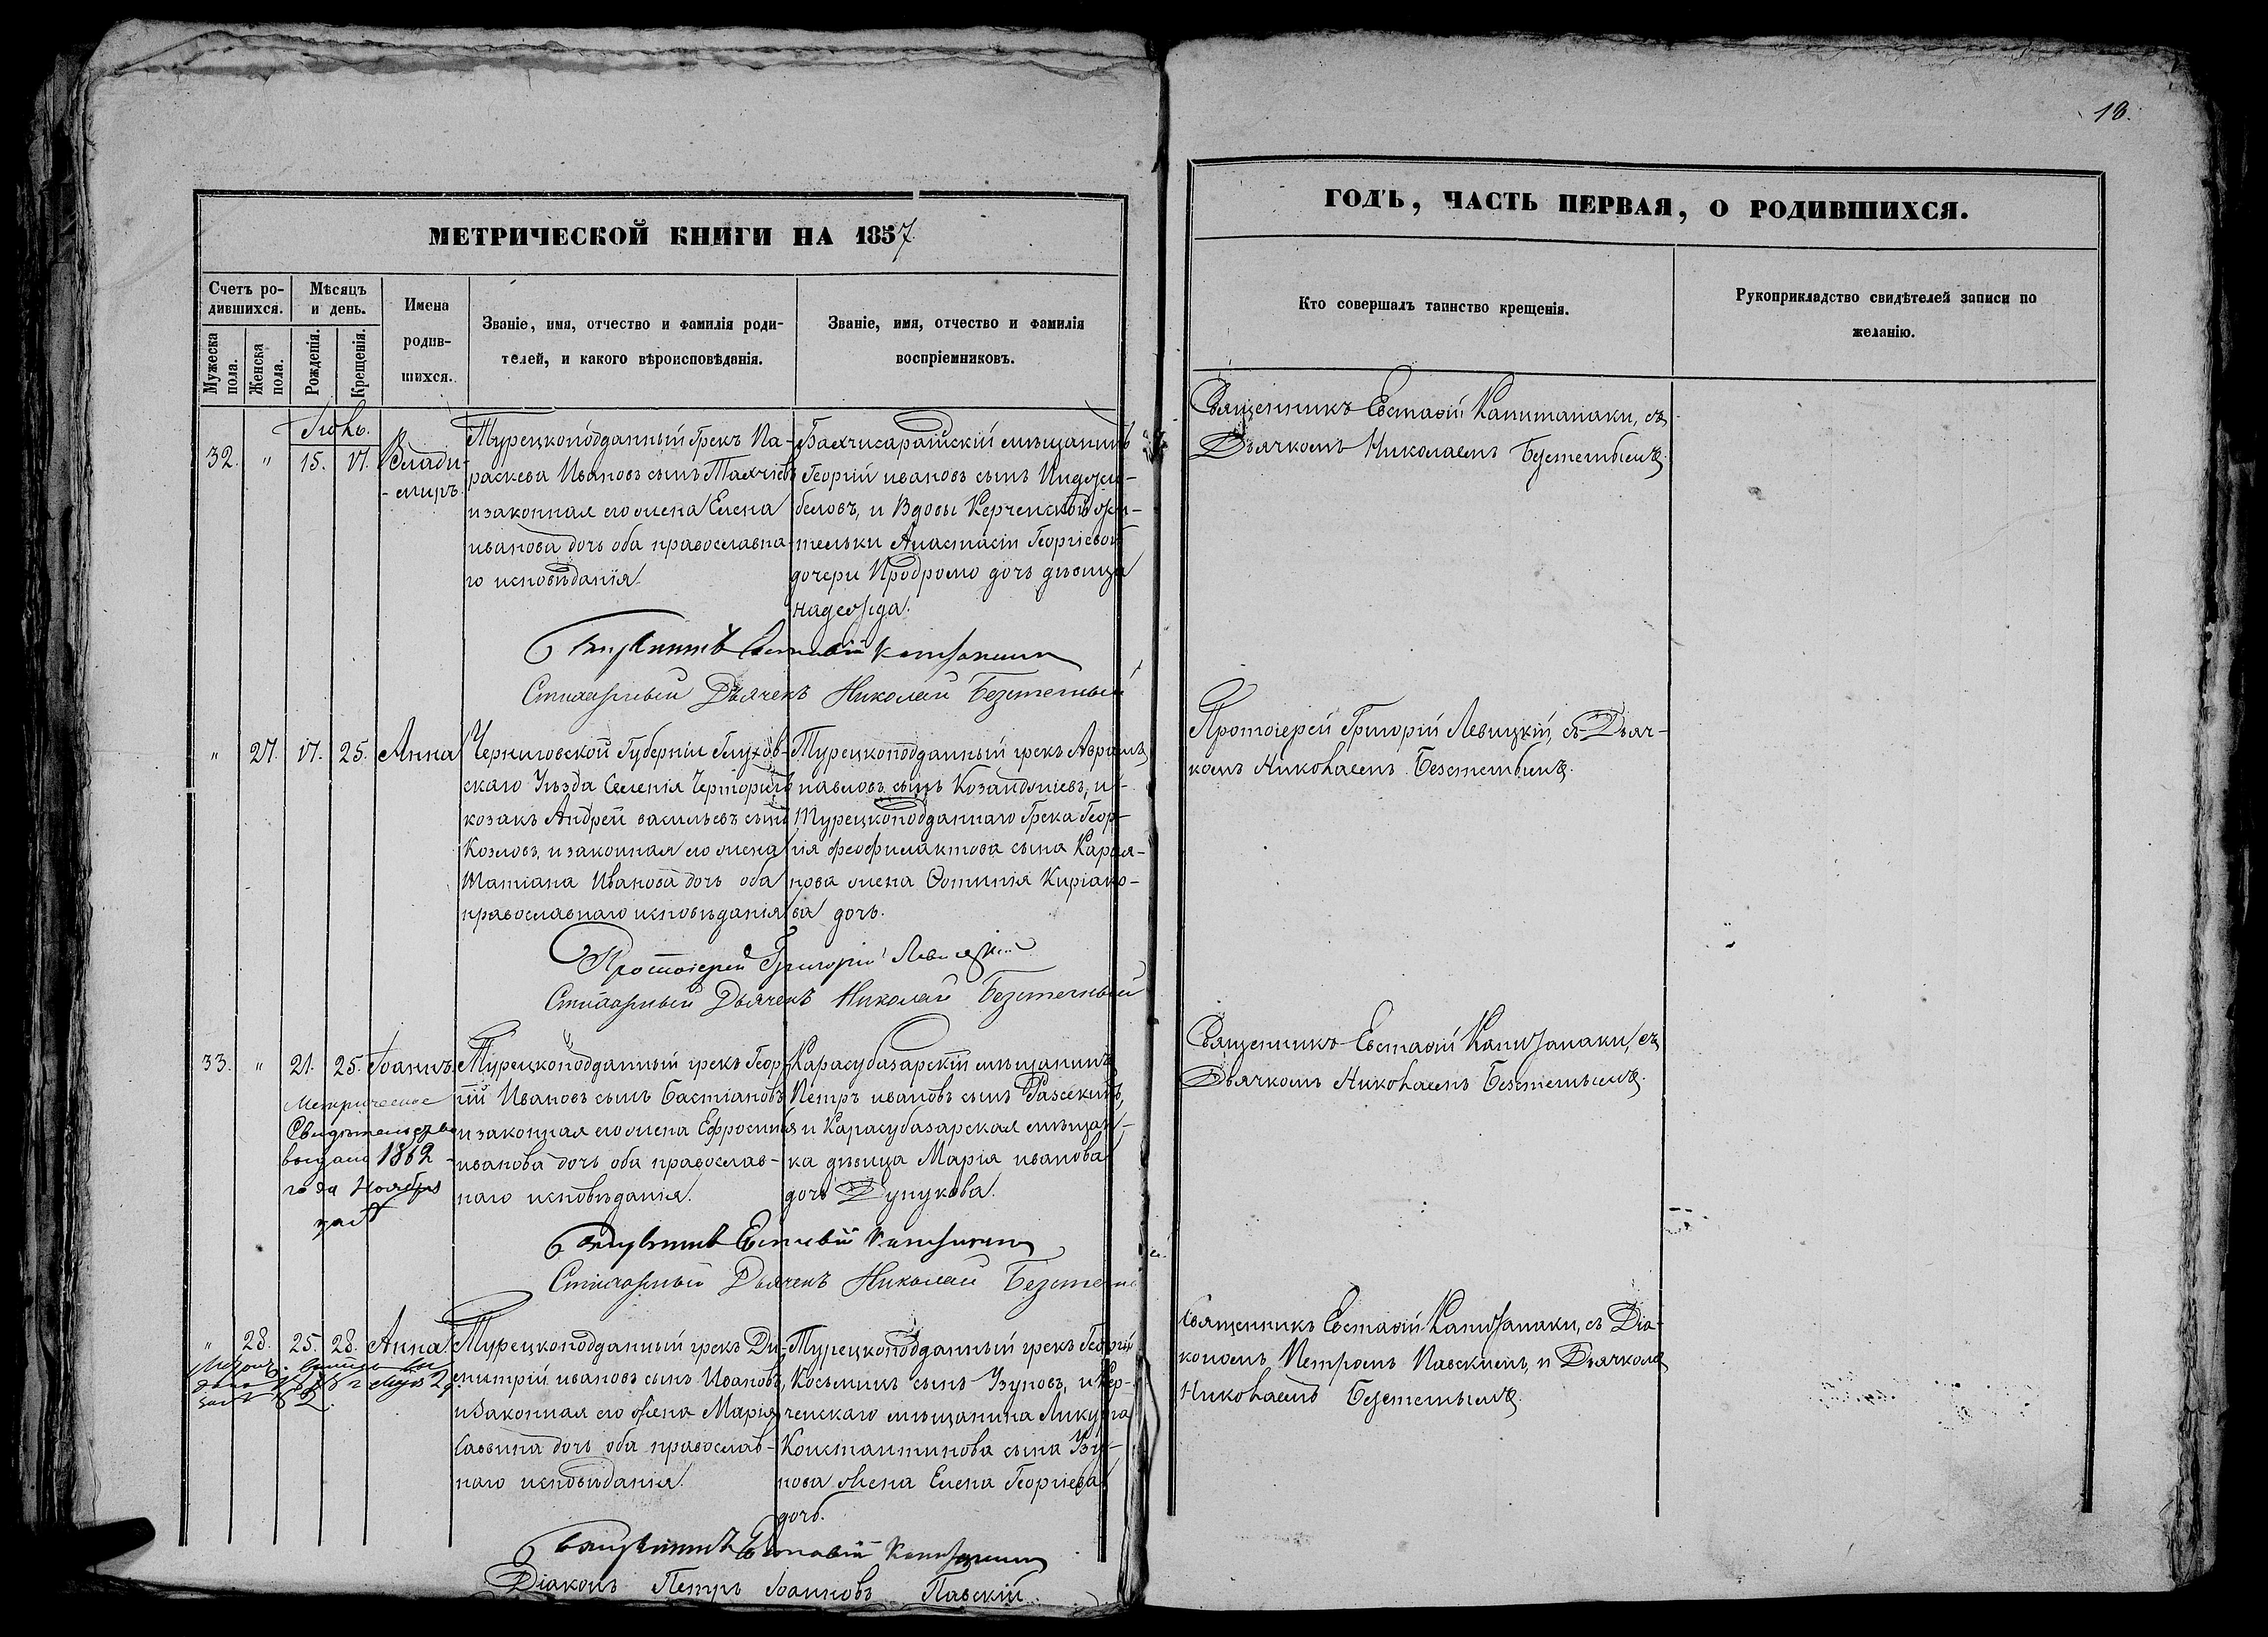 18.
МЕТРИЧЕСКОЙ КНИГИ НА 1857
ГОДЪ, ЧАСТЬ ПЕРВАЯ, О РОДИВШИХСЯ.
Счетъ ро-
дившихся.
Мужеска
пола.
Женска
пола.
Мѣсяцъ
и день.
Рожденія.
Крещенія.
Имена
родив-
шихся.
Званіе, имя, отчество и фамилія роди-
телей, и какого вѣроисповѣданія.
Званіе, имя, отчество и фамилія
воспріемниковъ.
Кто совершалъ таинство крещенія.
Рукоприкладство свидѣтелей записи по
желанію.
32. " 15. 17. Влади-
-миръ
Турецкоподданный Грекъ Па-
раскева Ивановъ сынъ
и законная его жена Елена
иванова дочь оба православна-
го исповѣданія.
Бахчисарайскій мѣщанинъ
Георгій ивановъ сынъ
и Вдовы Керченской жи-
тельки Анастасіи Георгіевой
дочери Продромо дочь дѣвица
надежда.
Священникъ Евстафій Капитанаки, съ
Дьячкомъ Николаемъ Безстетнымъ.
Стихарный Дьячекъ Николай Безстетный
" 27. 17. 25. Анна
Черниговской Губерніи Глухов-
скаго Уѣзда Селенія
козакъ Андрей васильевъ сынъ
Козловъ, и законная его жена
Татіана Иванова дочь оба
православнаго исповѣданія
Турецкоподданный грекъ
павловъ сынъ и
Турецкоподданнаго Грека Геор-
гія феофилактова сына
нова жена Фотинія Киріако-
ва дочь.
Протоіерей Григорій Левицкій, съ Дьяч-
комъ Николаемъ Безстетнымъ.
Протоіерей Григорій Левицкій
Стихарный Дьячекъ Николай Безстетный
33. " 21. 25. Іоаннъ.
Метрическое
Свидѣтельство
выдано 1862
года Ноября
Турецкоподданный грекъ Геор-
гій Ивановъ сынъ Бастіановъ
и законная его жена Ефросинія
иванова дочь оба православ-
наго исповѣданія.
Карасубазарскій мѣщанинъ
Петръ ивановъ сынъ
и Карасубазарская мѣщан-
ка дѣвица Марія иванова
дочь
Священникъ Евстафій Капитанаки, съ
Дьячкомъ Николаемъ Безстетнымъ.
Стихарный Дьячекъ Николай
" 28. 25. 28. Анна
Турецкоподданный грекъ Ди-
митрій ивановъ сынъ Ивановъ,
и Законная его жена Марія
Саввина дочь оба православ-
наго исповѣданія.
Турецкоподданный грекъ Георгій
Косьминъ сынъ Узуновъ, и Кер-
ченскаго мѣщанина
Константинова сына Узу-
нова жена Елена Георгіева
дочь.
Священникъ Евстафій Капитанаки, съ Діа-
кономъ Петромъ Павскимъ, и Дьячкомъ
Николаемъ Безстетнымъ.
Діаконъ Петръ Іоанновъ Павскій